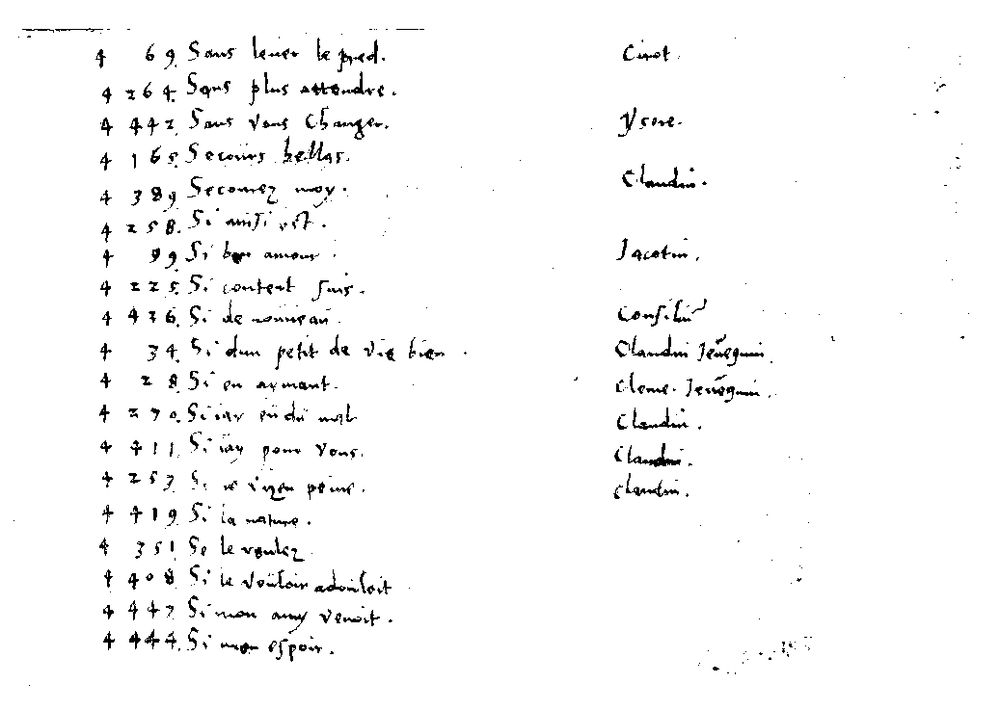 4 69 Sans leuer le pied. Cirot.
4 264. Sans plus attendre.
4 442. Sans vous Changer. ysore.
4 165. Secours hellas.
4 389 Secourez moy. Claudin.
4 258. Si ainsi est.
4 99 Si bon amour. Jacotin.
4 225. Si content suis.
4 436. Si de nouueau. Consiliu
4 34. Si dun petit de vie bien. Claudin Jeñequin
4 28 Si en aymant. Cleme. Jeñequin.
4 270. Si iay eu du mal Claudin.
4 411. Si iay pour vous. Claudin.
4 253. Si ie vizen peine. claudin.
4 419 Si la nature.
4 351 Se le voulez
4 408 Si le vouloir adoulcit
4 447 Si mon amy venoit.
4 444. Si mon espoir.